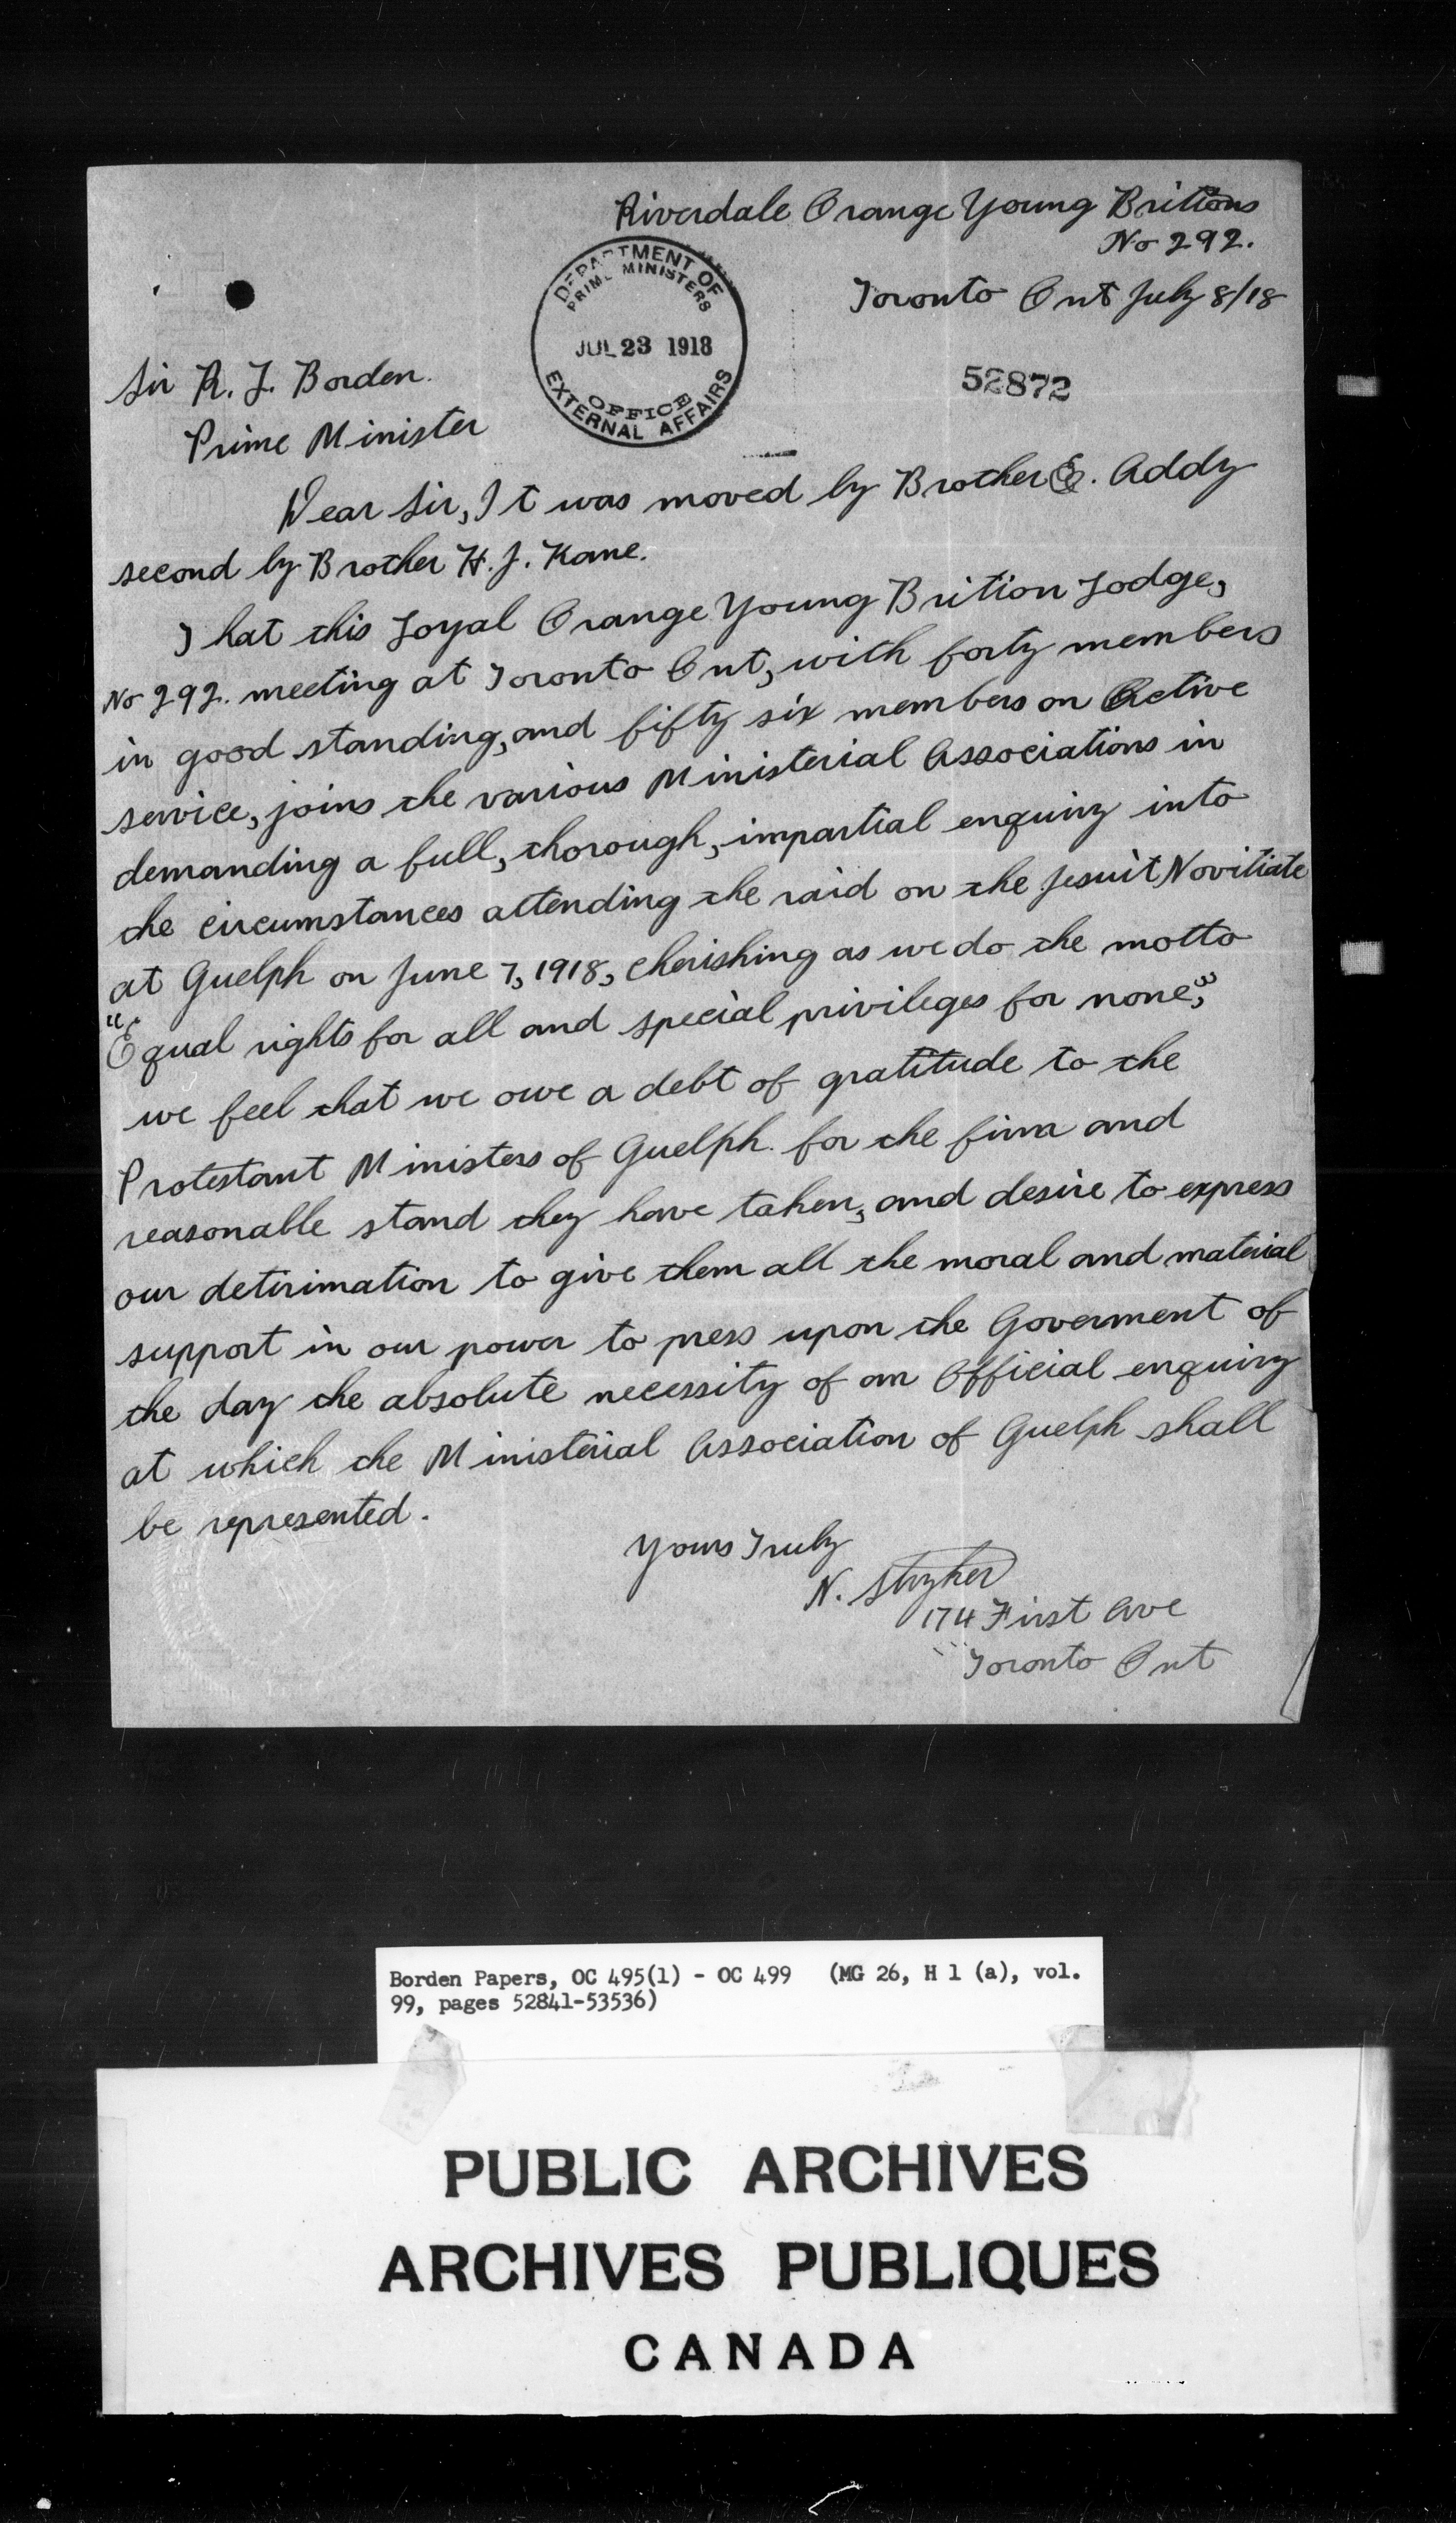 Riverdale Orange Young Britions
No 292.
Toronto Ont July 8/18
DEPARTMENT OF
PRIME MINISTERS
JUL 23 1918
OFFICE
EXTERNAL AFFAIRS
52872
Sir R. L. Borden.
Prime Minister
Dear Sir, It was moved by Brother E. Addy
second by Brother H. J. Kane.
That this Loyal Orange Young Brition Lodge,
No 292. meeting at Toronto Ont, with forty members
in good standing, and fifty six members on Active
service, joins the various Ministerial Associations in
demanding a full, thorough, impartial enquiry into
the circumstances attending the raid on the Jesuit Novitiate
at Guelph on June 7, 1918, cherishing as we do the motto
"Equal rights for all and special privileges for none,"
we feel that we owe a debt of gratitude to the
Protestant Ministers of Guelph. for the firm and
reasonable stand they have taken, and desire to express
our detirimation to give them all the moral and material
support in our power to press upon the Goverment of
the day the absolute necessity of an Official enquiry
at which the Ministerial Association of Guelph shall
be represented.
Yours Truly
N. Stryker
174 First Ave
Toronto Ont
Borden Papers, OC 495(1) - OC 499 (MG 26, H 1 (a), vol.
99, pages 52841-53536)
PUBLIC ARCHIVES
ARCHIVES PUBLIQUES
CANADA